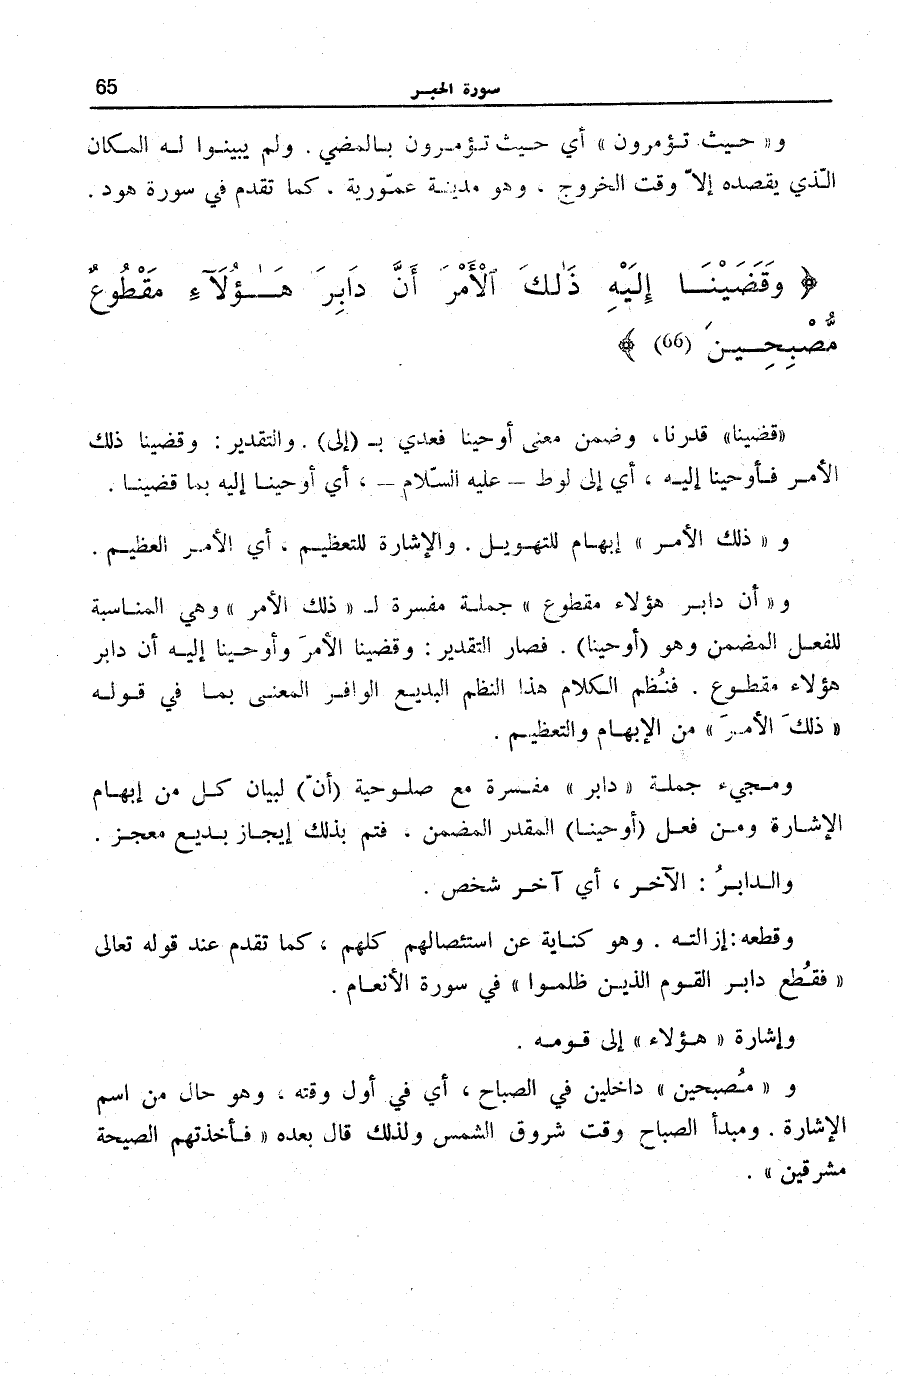 سورة الحجر 65
و« حيث تؤمرون » أي حيث تؤمرون بالمضي . ولم يبينوا له المكان
الّذي يقصده إلاّ وقت الخروج ، وهو مدينة عمّورية ، كما تقدم في سورة هود .
﴿ وَقَضَيْنَا إِلَيْهِ ذَٰلِكَ ٱلْأَمْرَ أَنَّ دَابِرَ هَٰؤُلَآءِ مَقْطُوعٌ
مُّصْبِحِينَ (66) ﴾
«قضينا» قدرنا، وضمن معنى أوحينا فعدي بـ (إلى) . والتقدير : وقضينا ذلك
الأمر فأوحينا إليه ، أي إلى لوط – عليه السّلام – ، أي أوحينا إليه بما قضينا .
و « ذلك الأمر » إبهام للتهويل . والإشارة للتعظيم ، أي الأمر العظيم .
و « أن دابر هؤلاء مقطوع » جملة مفسرة لـ « ذلك الأمر » وهي المناسبة
للفعل المضمن وهو (أوحينا) . فصار التقدير : وقضينا الأمرَ وأوحينا إليه أن دابر
هؤلاء مقطوع . فنُظم الكلام هذا النظم البديع الوافر المعنى بما في قوله
« ذلكَ الأمرَ » من الإبهام والتعظيم .
ومجيء جملة « دابر » مفسرة مع صلوحية (أنّ) لبيان كل من إبهام
الإشارة ومن فعل (أوحينا) المقدر المضمن ، فتم بذلك إيجاز بديع معجز .
والدابرُ : الآخر ، أي آخر شخص .
وقطعه : إزالته . وهو كناية عن استئصالهم كلهم ، كما تقدم عند قوله تعالى
« فقُطع دابر القوم الذين ظلموا » في سورة الأنعام .
وإشارة « هؤلاء » إلى قومه .
و « مُصبحين » داخلين في الصباح ، أي في أول وقته ، وهو حال من اسم
الإشارة . ومبدأ الصباح وقت شروق الشمس ولذلك قال بعده « فأخذتهم الصيحة
مشرقين » .